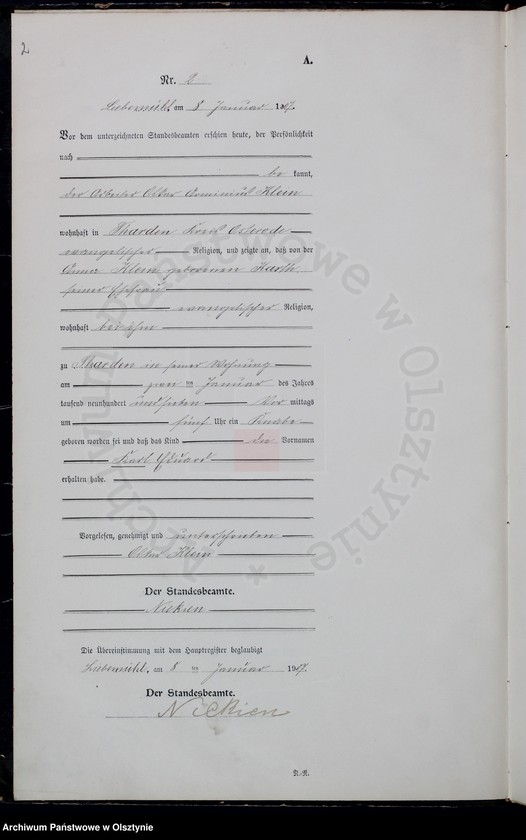 2
A.
Nr. 2
Liebemühl, am 8 Januar 1907.
Vor dem unterzeichneten Standesbeamten erschien heute, der Persönlichkeit
nach
be kannt,
der Arbeiter Ottar Arminius Klein
wohnhaft in Tharden Kreis Osterode
evangelischer Religion, und zeigte an, daß von der
Anna Klein geborenen Harth
seiner Ehefrau
evangelischer Religion,
wohnhaft bei ihm
zu Tharden in seiner Wohnung
am ten Januar des Jahres
tausend neunhundert und sieben Vor mittags
um fünf Uhr ein Knabe
geboren worden sei und daß das Kind die Vornamen
Karl Eduard
erhalten habe.
Vorgelesen, genehmigt und unterschrieben
Ottar Klein
Der Standesbeamte.
Nickien
Die Übereinstimmung mit dem Hauptregister beglaubigt
Liebemühl, am 8 ten Januar 1907.
Der Standesbeamte.
Nickien
N.-N.
Archiwum Państwowe w Olsztynie *
Archiwum Państwowe w Olsztynie
skanoteka